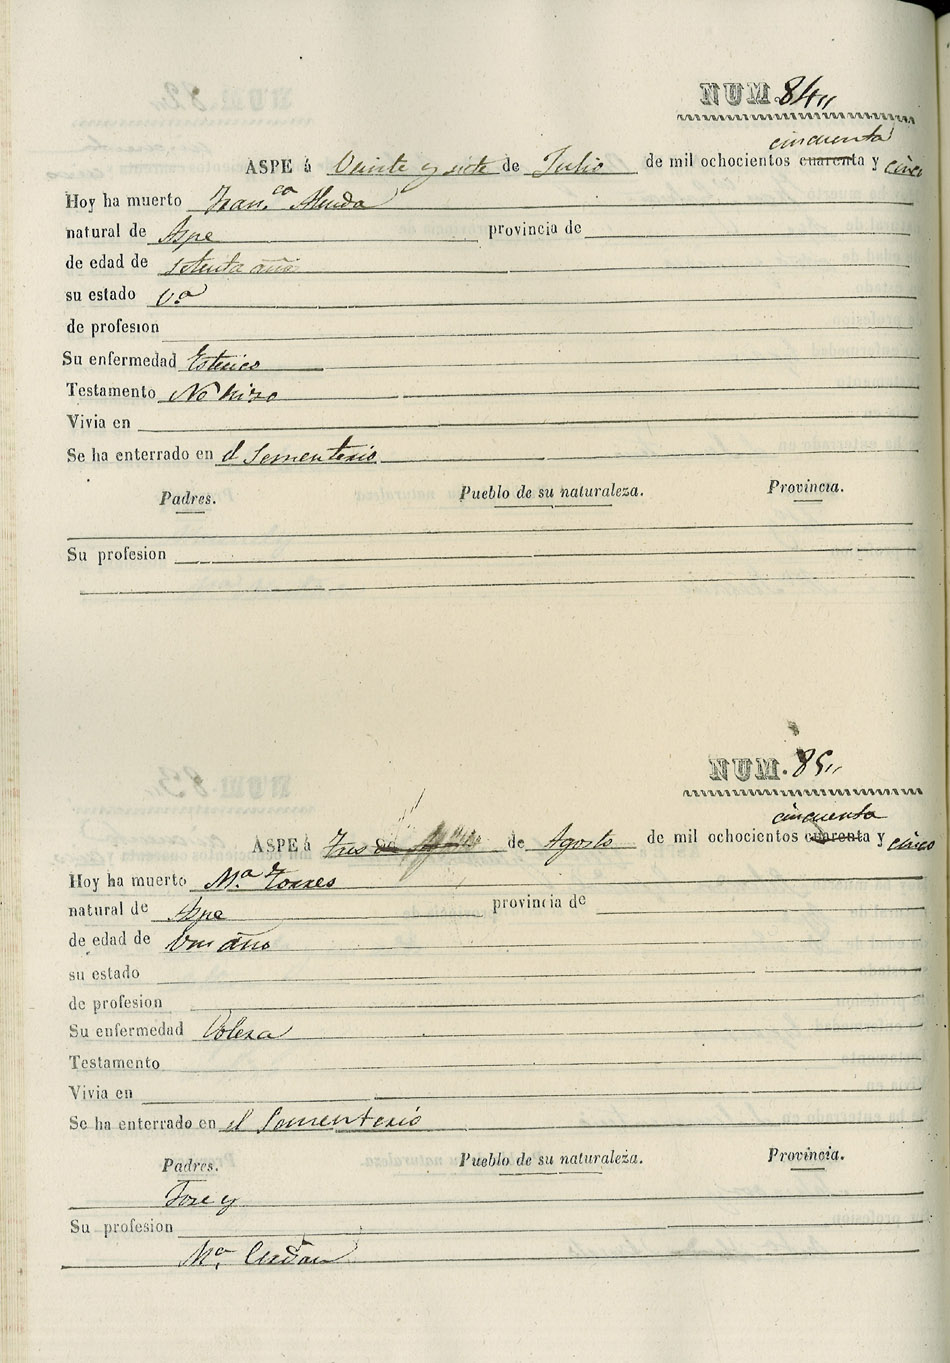 NUM. 84,,
cincuenta
ASPE á Veinte y siete de Julio de mil ochocientos cuarenta y cinco
Hoy ha muerto Fran.ca
natural de Aspe provincia de
de edad de setenta años
su estado V.a
de profesion
Su enfermedad
Testamento No hizo
Vivia en
Se ha enterrado en el Sementerio
Padres. Pueblo de su naturaleza. Provincia.
Su profesion
NUM. 85,,
cincuenta
ASPE á Tres de de Agosto de mil ochocientos cuarenta y cinco
Hoy ha muerto M.a Torres
natural de Aspe provincia de
de edad de Un año
su estado
de profesion
Su enfermedad Colera
Testamento
Vivia en
Se ha enterrado en el Sementerio
Padres. Pueblo de su naturaleza. Provincia.
Jose y
Su profesion
M.a Cerdan